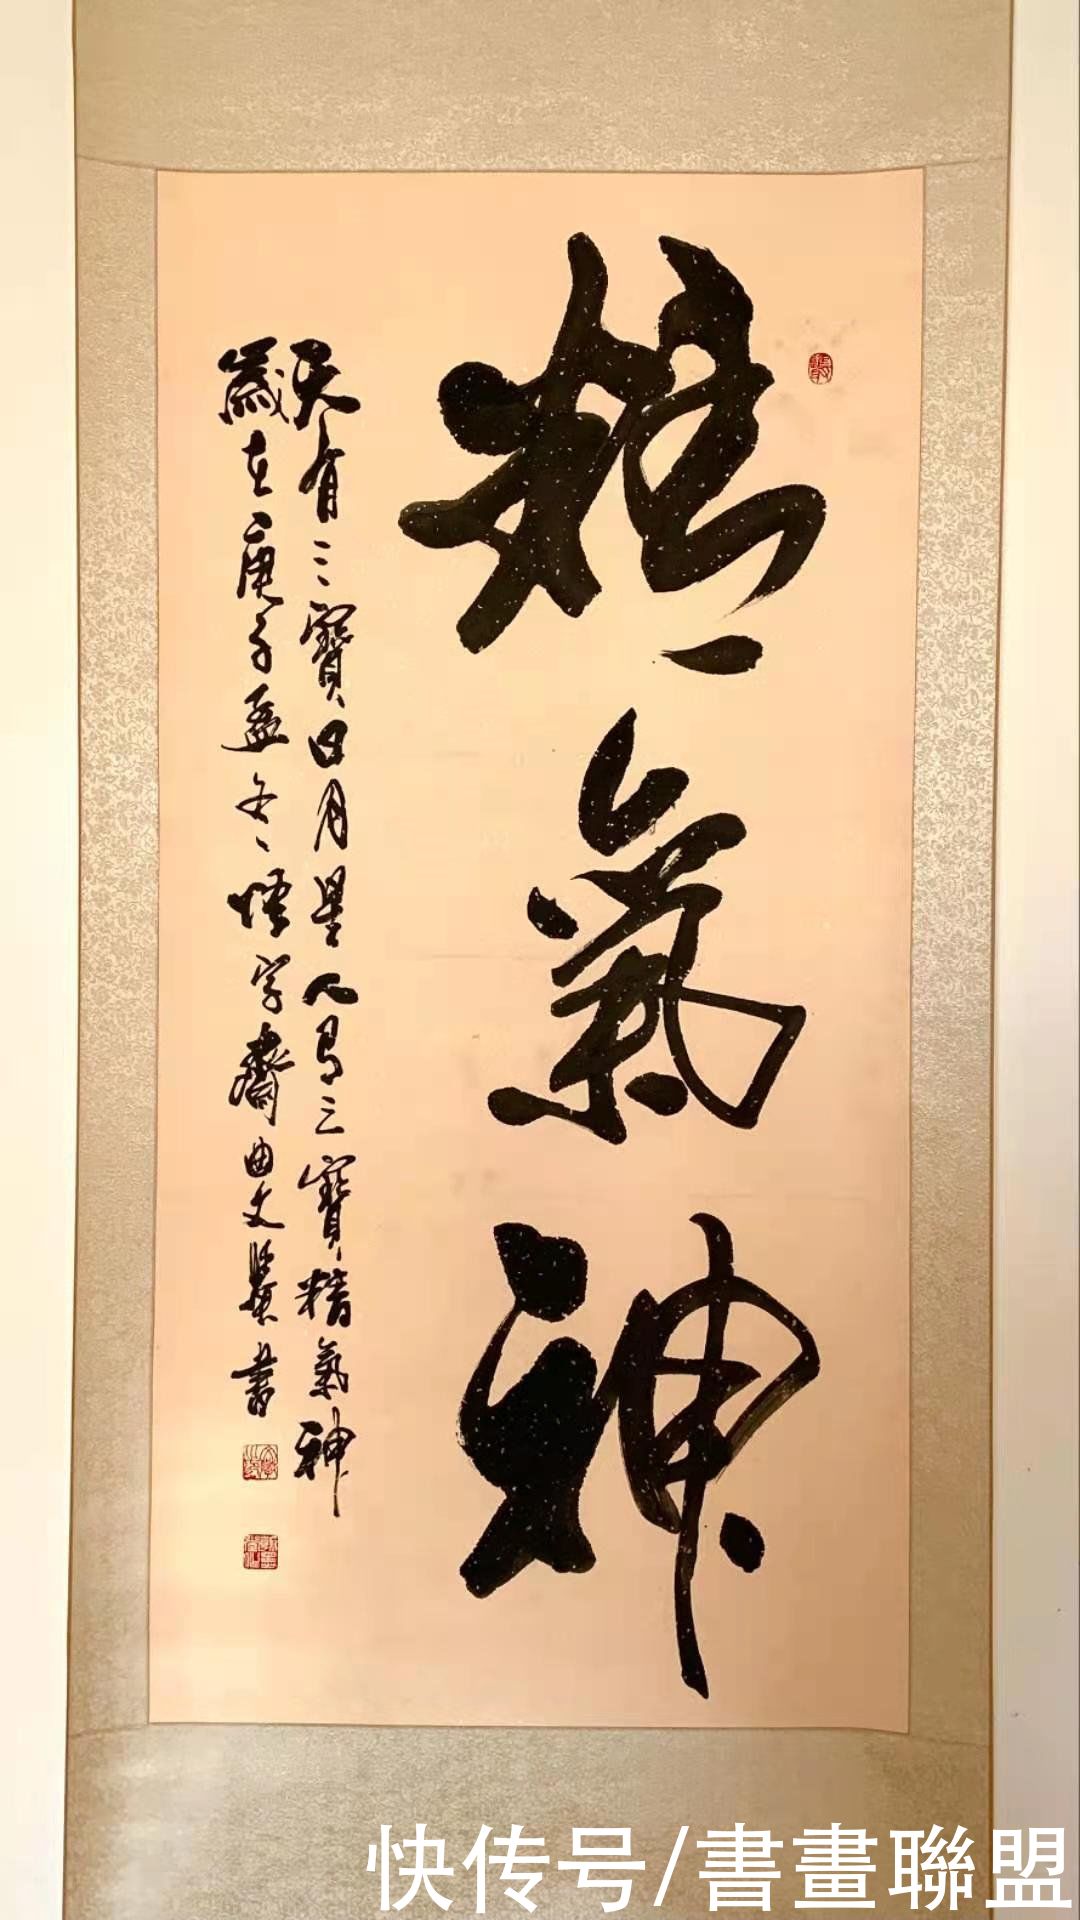 精氣神
天有三寶日月星人有三寶精氣神
歲在庚子孟冬悟字齋曲文學書
快传号/書畫聯盟